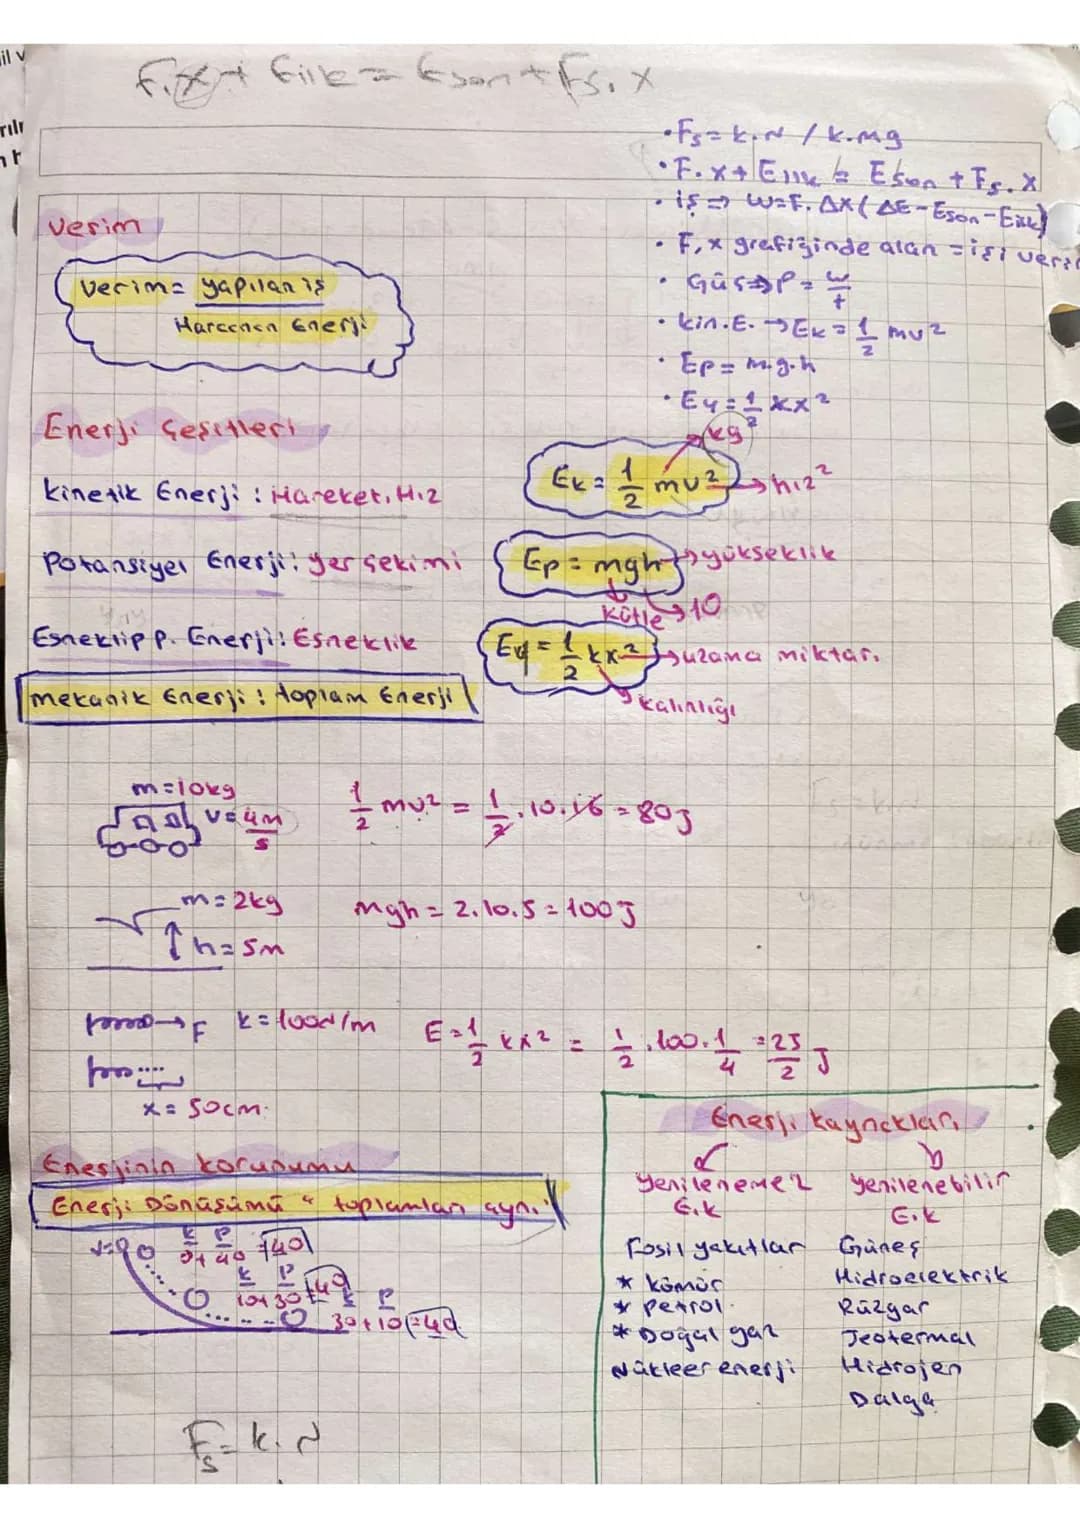 F.x + Eilk = Eson + Fs.x
• Fs = k.N / k.mg
• F.x + Eilk = Eson + Fs.x
• iş ⇒ W=F.Δx (ΔE-Eson-Eilk)
• F,x grafiğinde alan = işi verir
• Güç ⇒ P = w/t
• kin.E. → Ek = 1/2 mv²
• Ep = m.g.h
• Ey = 1/2 kx²
Verim
Verim = yapılan iş
Harcanan Enerji
Enerji Çeşitleri
kg
Ek = 1/2 mv² → hız²
Kinetik Enerji : Hareket, Hız
Potansiyel Enerji : yer çekimi
Ep = mgh → yükseklik
kütle → 10
Esneklip p. Enerji : Esneklik
Ey = 1/2 kx² → uzama miktarı
kalınlığı
mekanik Enerji : toplam Enerji
m=10kg
v=4m/s
1/2 mv² = 1/2 . 10.16 = 80J
m=2kg
h=5m
mgh = 2.10.5 = 100J
F k=100N/m E=1/2 kx² = 1/2 .100.1/4 = 25/2 J
x = 50cm.
Enerjinin korunumu
Enerji Dönüşümü " toplamları aynı "
v=0
k P
0+40=40
k P
10+30=40
k P
30+10=40
Fs = k.N
Enerji kaynakları
Yenilenemez E.k
Fosil yakıtlar
* kömür
* petrol.
* Doğal gaz
Nükleer enerji
yenilenebilir E.k
Güneş
Hidroelektrik
Rüzgar
Jeotermal
Hidrojen
Dalga